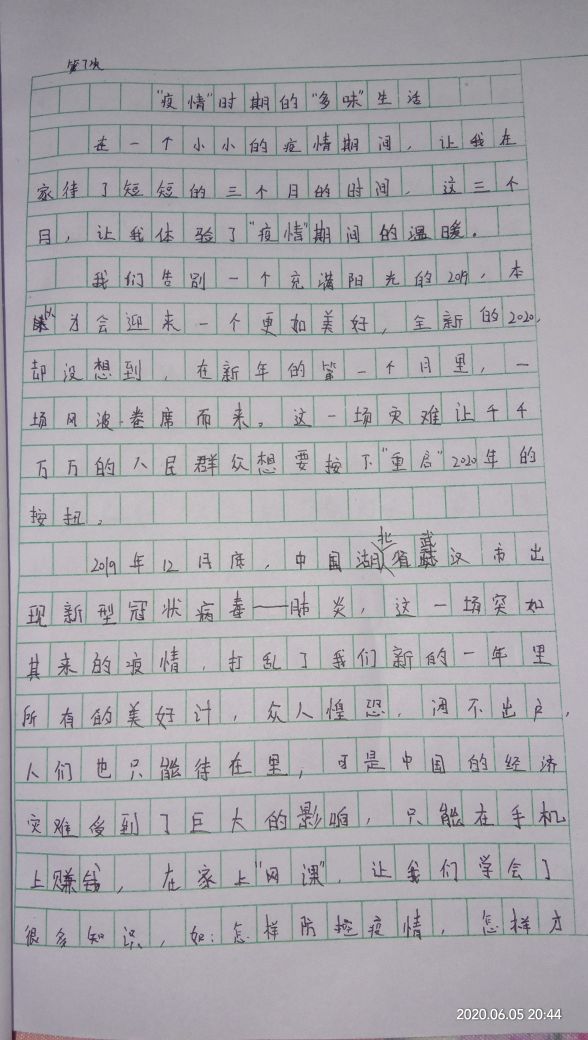 第7次
"疫情"时期的"多味"生活
在一个小小的疫情期间，让我在
家待了短短的三个月的时间，这三个
月，让我体验了"疫情"期间的温暖。
我们告别一个充满阳光的2019，本
以为会迎来一个更加美好，全新的2020，
却没想到，在新年的第一个月里，一
场风波·卷席而来。这一场灾难让千千
万万的人民群众想要按下"重启"2020年的
按扭。
2019年12月底，中国湖北省武汉市出
现新型冠状病毒——肺炎，这一场突如
其来的疫情，打乱了我们新的一年里
所有的美好计，众人惶恐，闭不出户，
人们也只能待在里，可是中国的经济
灾难受到了巨大的影响，只能在手机
上赚钱，在家上"网课"，让我们学会了
很多知识，如：怎样防控疫情，怎样才
2020.06.05 20:44